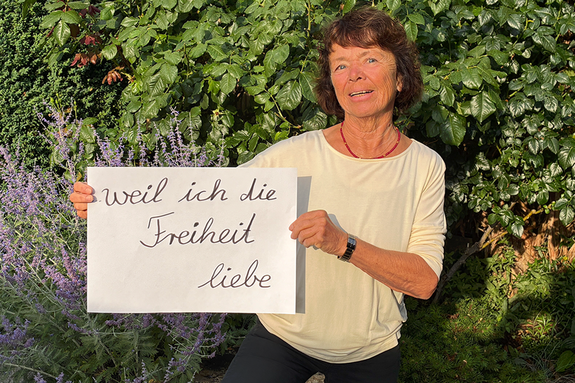 weil ich die
Freiheit
liebe